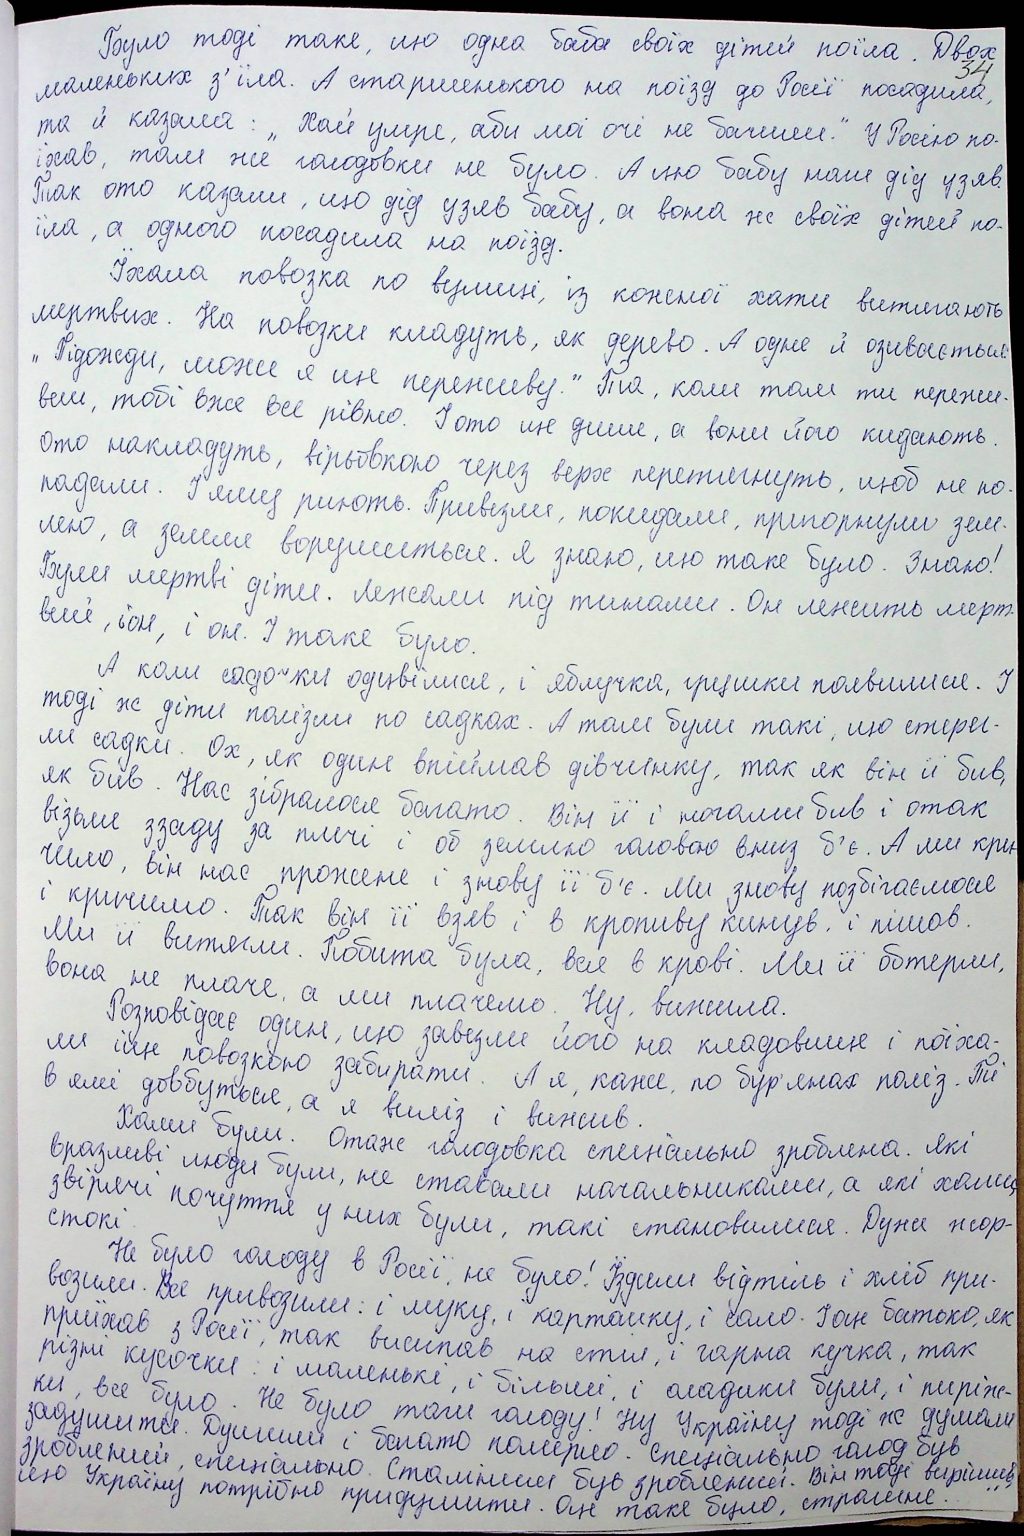 Було тоді таке, що одна баба своїх дітей поїла. Двох
34
маленьких з'їла. А старшенького на поїзд до Росії посадила,
та й казала: „Хай умре, аби мої очі не бачили." У Росію по-
їхав, там же голодовки не було. А цю бабу наш дід узяв.
Так ото казали, що дід узяв бабу, а вона ж своїх дітей по-
їла, а одного посадила на поїзд.
Їхала повозка по вулиці, із кожної хати витягають
мертвих. На повозки кладуть, як дерево. А одне й озивається:
„Підожди, може я ще переживу." Та, коли там ти пережи-
веш, тобі вже все рівно. І ото ще дише, а вони його кидають.
Ото накладуть, вірьовкою через верх перетягнуть, щоб не по-
падали. І яму риють. Привезли, покидали, пригорнули зем-
лею, а земля ворушиться. Я знаю, що таке було. Знаю!
Були мертві діти. Лежали під тинами. Он лежить мерт-
вий, і он, і он. І таке було.
А коли садочки одцвілися, і яблучка, грушки появилися. І
тоді ж діти полізли по садках. А там були такі, що стерег-
ли садки. Ох, як один впіймав дівчинку, так як він її бив,
як бив. Нас зібралося багато. Він її і ногами бив і отак
візьме ззаду за плечі і об землю головою вниз б'є. А ми кри-
чимо, він нас прожене і знову її б'є. Ми знову позбігаємося
і кричимо. Так він її взяв і в кропиву кинув, і пішов.
Ми її витягли. Побита була, вся в крові. Ми її обтерли,
вона не плаче, а ми плачемо. Ну, вижила.
Розповідає один, що завезли його на кладовище і поїха-
ли ще повозкою забирати. А я, каже, по бур'янах поліз. Ті
в ямі довбуться, а я виліз і вижив.
Хами були. Отаж голодовка спеціально зроблена. Які
вразливі люди були, не ставали начальниками, а які хами,
звірячі почуття у них були, такі становилися. Дуже жор-
стокі.
Не було голоду в Росії, не було! Їздили відтіль і хліб при-
возили. Все привозили: і муку, і картошку, і сало. І он батько, як
приїхав з Росії, так висипав на стіл, і гарна кучка, так
різні кусочки: і маленькі, і більші, і оладики були, і піріж-
ки, все було. Не було там голоду! Ну Україну тоді ж думали
задушити. Душили і багато померло. Спеціально голод був
зроблений, спеціально. Сталіним був зроблений. Він тоді вирішив,
що Україну потрібно придушити. Он таке було, страшне...